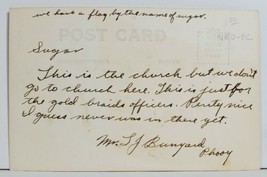 we have a flag by the name of sugar.
POST CARD
Sugar
This is the church but we don't
go to church here. This is just for
the gold braids officers. Pretty nice
I guess never was in there yet.
Mrs. T J Bunyard
Phooy